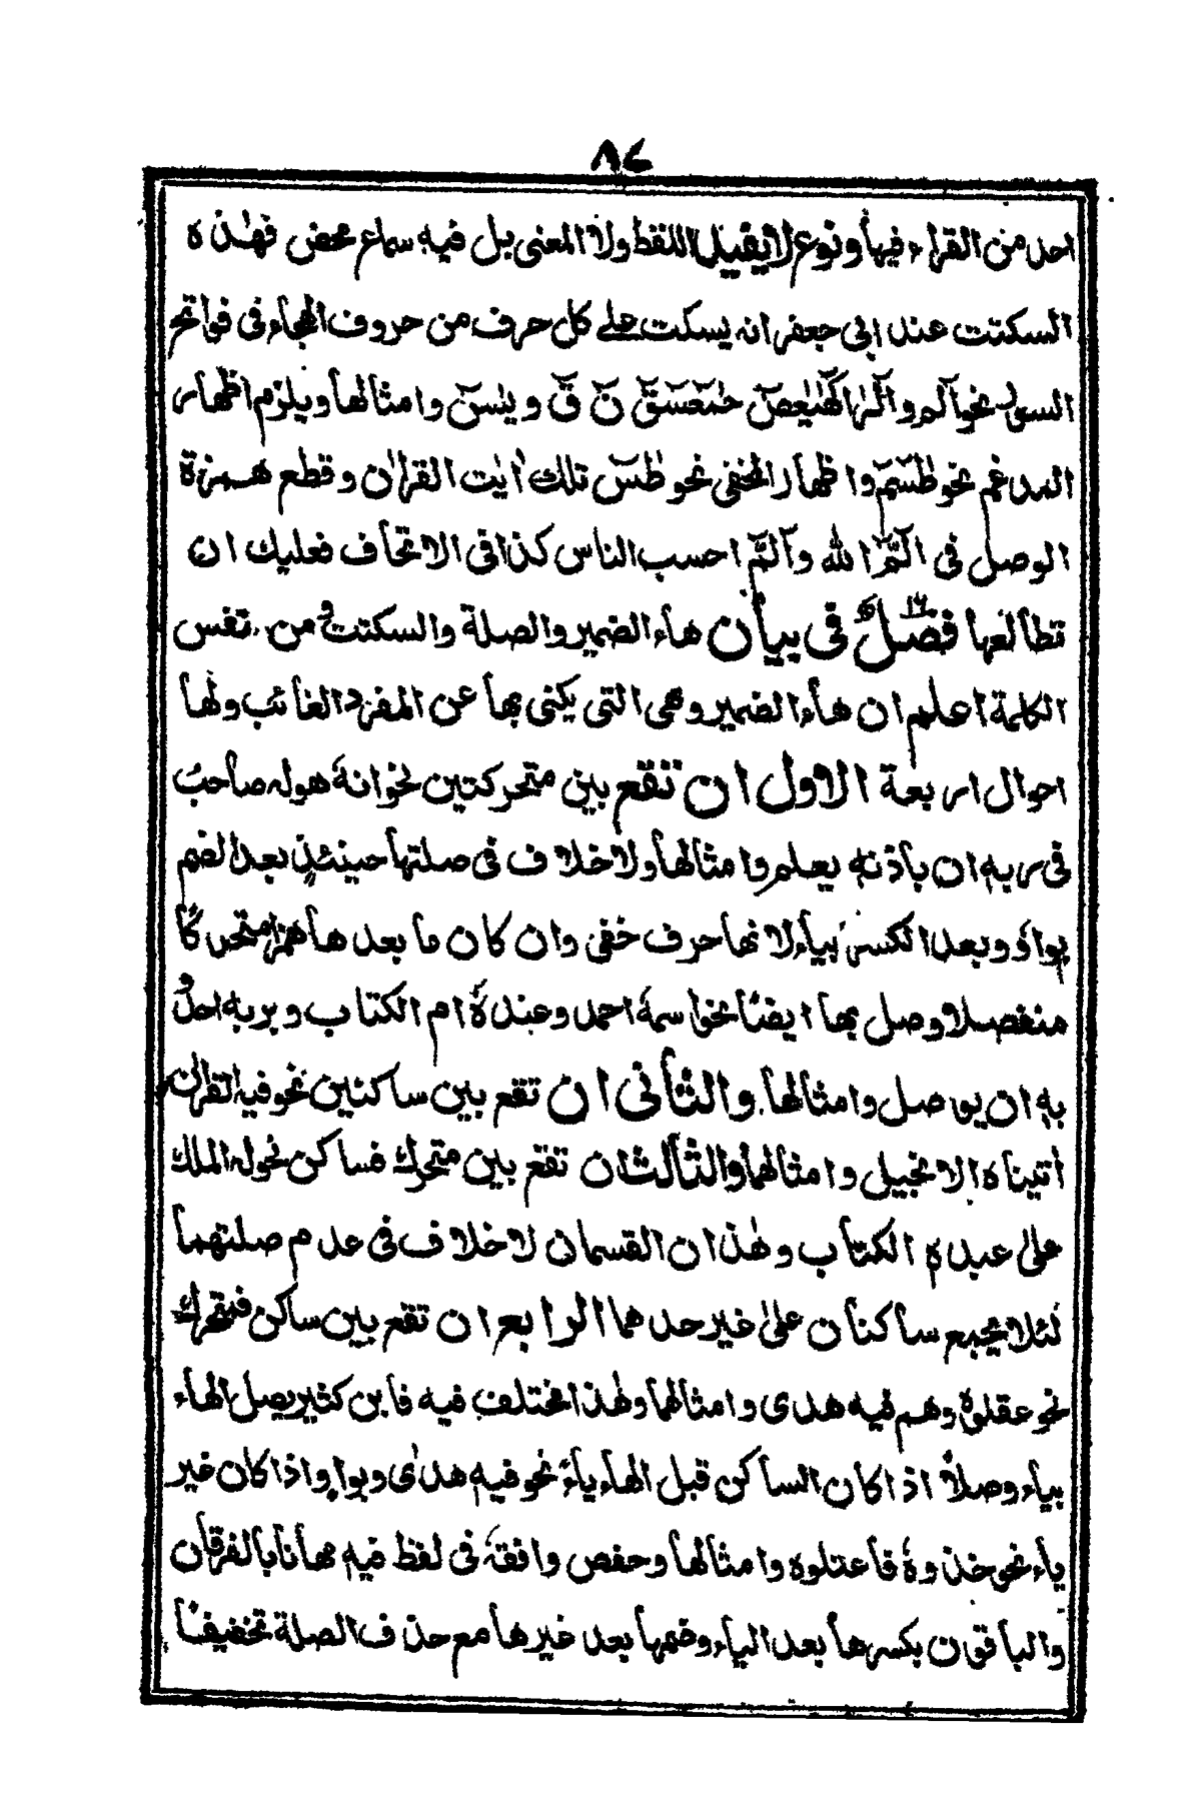 ٨٤
احد من القراء فيها ونوع لا يقبل اللفظ ولا المعنى بل فيه سماع محض فهٰذه
السكتت عند ابى جعفر انه يسكت على كل حرف من حروف الهجاء فى فواتح
السور نحو آلم و آلرٰ كٓهٰيٰعص حٰمٓعٓسٓقٓ نٓ قٓ و يٰسٓ وامثالها ويلزم اظهار
المدغم نحو طٰسٓمٓ واظهار المخفى نحو طٰسٓ تلك اٰيٰت القراٰن وقطع همزة
الوصل فى الٓمّٓ الله وآلمّٓ احسب الناس كذا فى الاتحاف فعليك ان
تطالعها فصلٌ فى بيان هاء الضمير والصلة والسكتت من نفس
الكلمة اعلم ان هاء الضمير وهى التى يكنى بها عن المفرد الغائب ولها
احوال اربعة الاول ان تقع بين متحركتين نحو انهٗ هو له صاحبٌ
فى ربهٖ ان باذنهٖ يعلم وامثالها ولا خلاف فى صلتها حينئذٍ بعد الضم
بواوٍ وبعد الكسر بياء لانها حرف خفى وان كان ما بعد ها همزا متحركا
منفصلا وصل بها ايضًا نحو اسمهٗ احمد وعندهٗ ام الكتاب وبربهٖ احدٌ
بهٖ ان يوصل وامثالها والثانى ان تقع بين ساكنين نحو فيه القراٰن
اٰتيناه الانجيل وامثالهما والثالث ان تقع بين متحرك فساكن نحو له الملك
على عبده الكتاب وهٰذان القسمان لا خلاف فى عدم صلتهما
لئلا يجمع ساكنان علىٰ غير حدهما الرابع ان تقع بين ساكن فمتحرك
نحو عقلوهٗ وهم فيه هدى وامثالهما وهٰذا مختلف فيه فابن كثير يصل الهاء
بياء وصلاً اذا كان الساكن قبل الهاء ياءً نحو فيهٖ هدًى وبواوٍ اذا كان غير
ياء نحو خذوهٗ فاعتلوه وامثالها وحفص وافقهٗ فى لفظ فيهٖ مهانا بالفرقان
والباقون بكسرها بعد الياء وضمها بعد غيرها مع حذف الصلة تخفيفًا